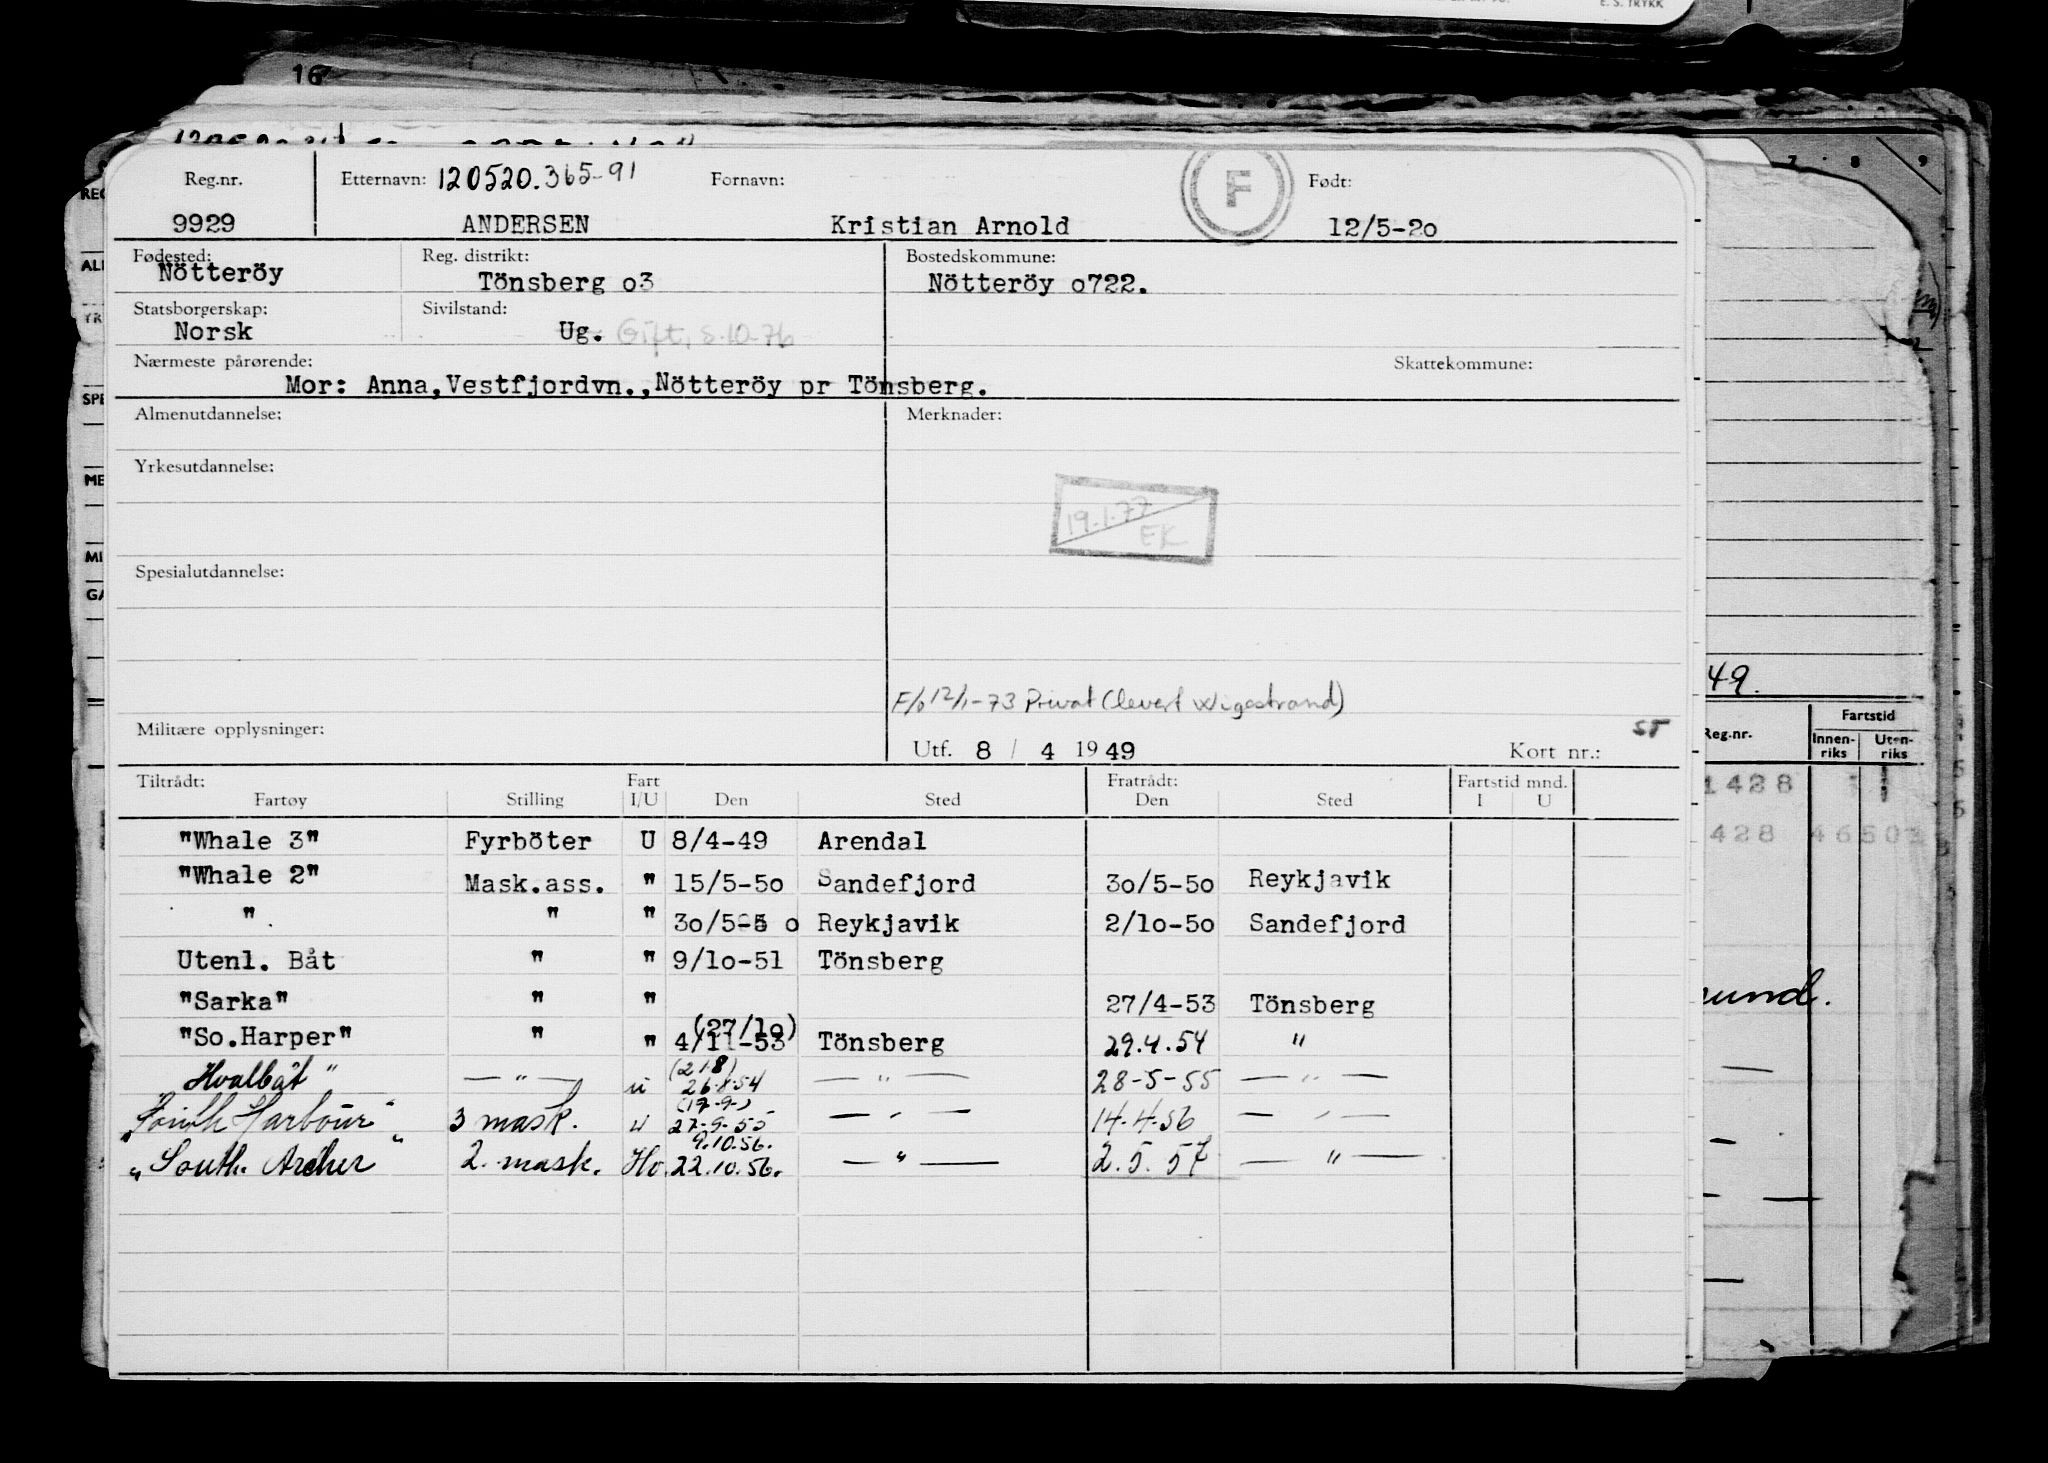 E. S. TRYKK
16
7 8 9
Reg.nr. Etternavn: 120520.365-91 Fornavn: F Født:
9929 ANDERSEN Kristian Arnold 12/5-2o
Fødested: Reg. distrikt: Bostedskommune:
Nötteröy Tönsberg o3 Nötteröy o722.
Statsborgerskap: Sivilstand:
Norsk Ug. Gift, 5.10-76
Nærmeste pårørende: Skattekommune:
Mor: Anna,Vestfjordvn.,Nötteröy pr Tönsberg.
Almenutdannelse: Merknader:
Yrkesutdannelse:
19.1.77
EK
Spesialutdannelse:
F/o 12/1-73 Privat (levert Wigestrand)
Militære opplysninger: ST
Utf. 8 / 4 1949 Kort nr.:
Tiltrådt: Fart Fratrådt: Fartstid mnd.
Fartøy Stilling I/U Den Sted Den Sted I U
"Whale 3" Fyrböter U 8/4-49 Arendal
"Whale 2" Mask.ass. " 15/5-5o Sandefjord 3o/5-5o Reykjavik
" " " 3o/5-5 o Reykjavik 2/1o-5o Sandefjord
Utenl. Båt " " 9/1o-51 Tönsberg
"Sarka" " " 27/4-53 Tönsberg
(27/1o)
"So.Harper" " " 4/11-53 Tönsberg 29.4.54 "
(21.8)
Hvalbåt " — " — u 26.8.54 — " — 28-5-55 — " —
(19.9.)
"South Harbour" 3 mask. u 27-9-55 — " — 14-4-56 — " —
9.10.56.
"South. Archer" 2. mask. Hv. 22.10.56. — " — 2.5.57 — " —
49.
Reg.nr. Fartstid
Innen-riks Uten-riks
1428
428 46503